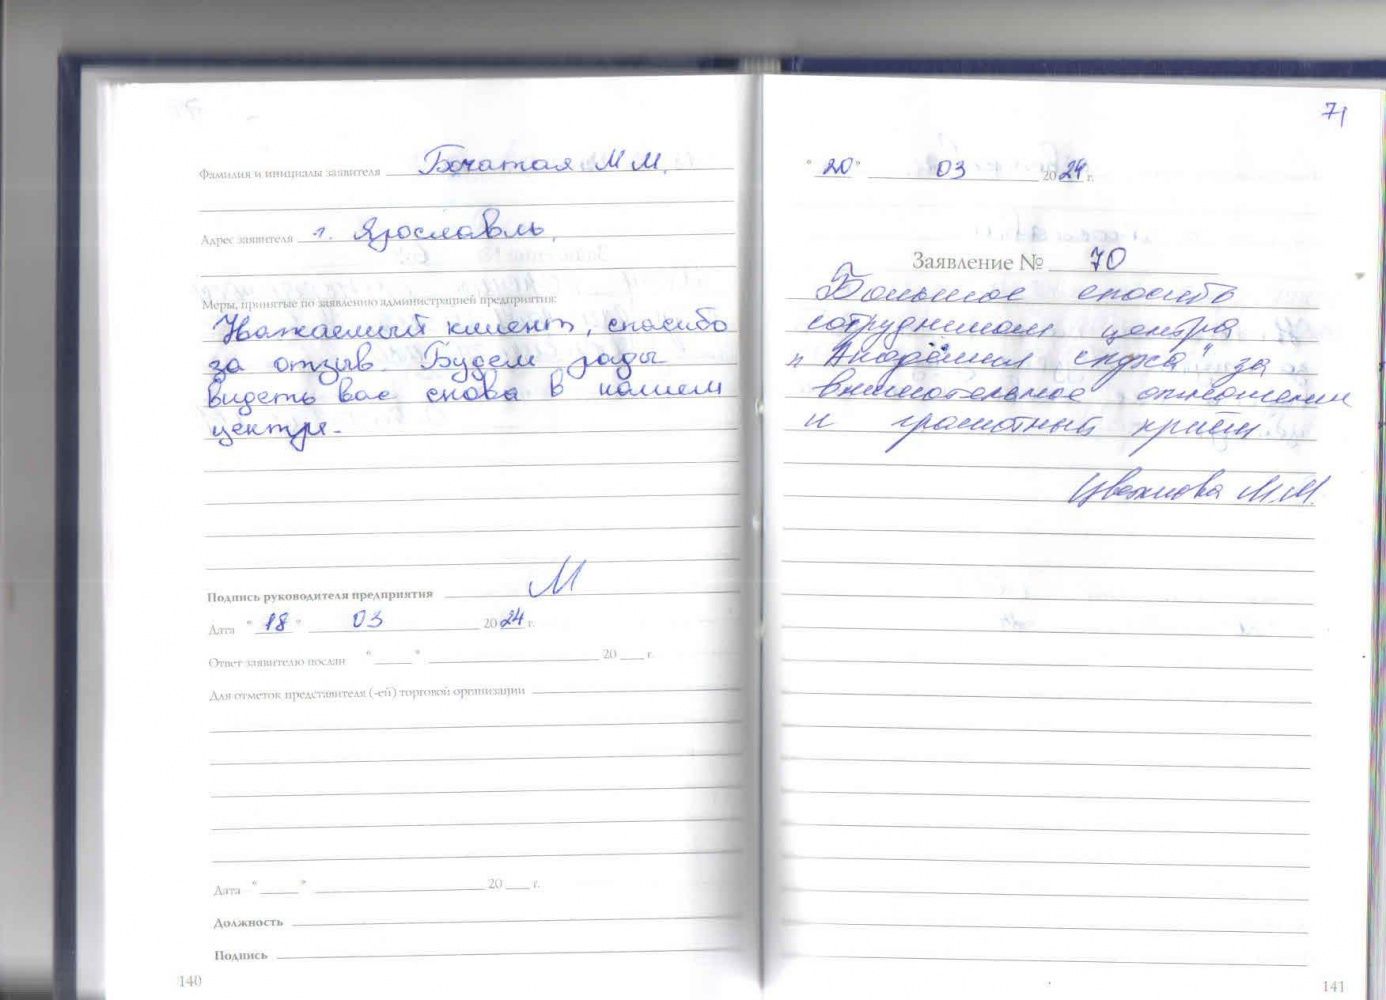 Фамилия и инициалы заявителя Богатая М М.
Адрес заявителя г. Ярославль,
Меры, принятые по заявлению администрацией предприятия:
Уважаемый клиент, спасибо
за отзыв. Будем рады
видеть вас снова в нашем
центре.
Подпись руководителя предприятия М
Дата "18" 03 2024 г.
Ответ заявителю послан "___" 20__ г.
Для отметок представителя (-ей) торговой организации
Дата "___" 20__ г.
Должность
Подпись
140
71
"20" 03 2024 г.
Заявление № 70
Большое спасибо
сотрудникам центра
"Академия слуха" за
внимательное отношение
и грамотный приём
М.М.
141